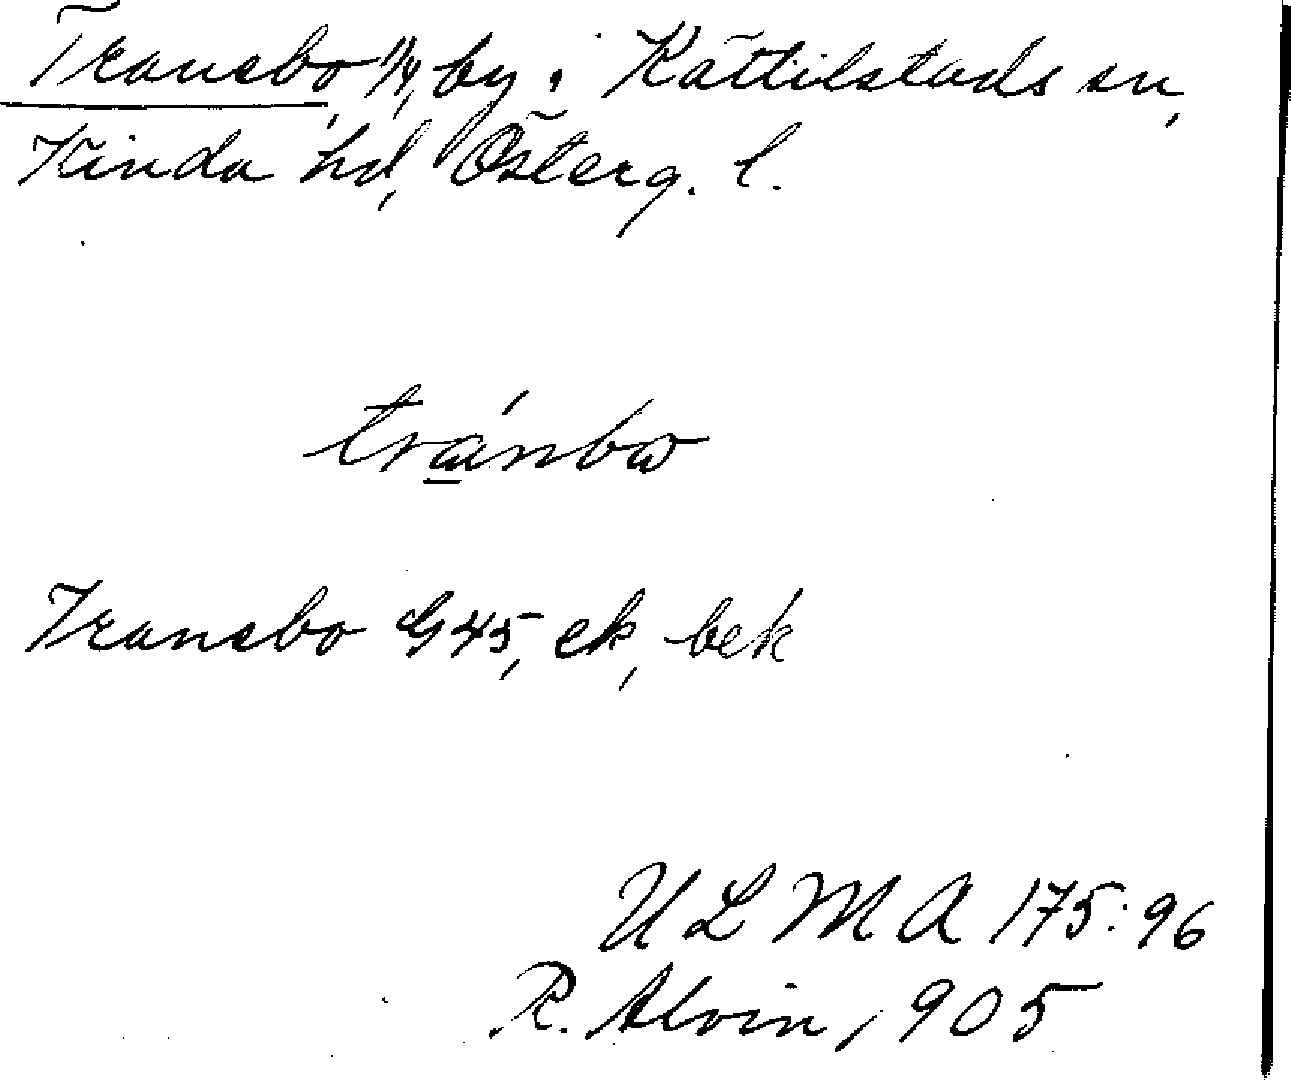 Transbo, 1/4, by i Kättilstads sn,
Kinda hd, Österg. l.
tránbω
Transbo G45, ek, bek
ULMA 175:96
R. Alvin, 905